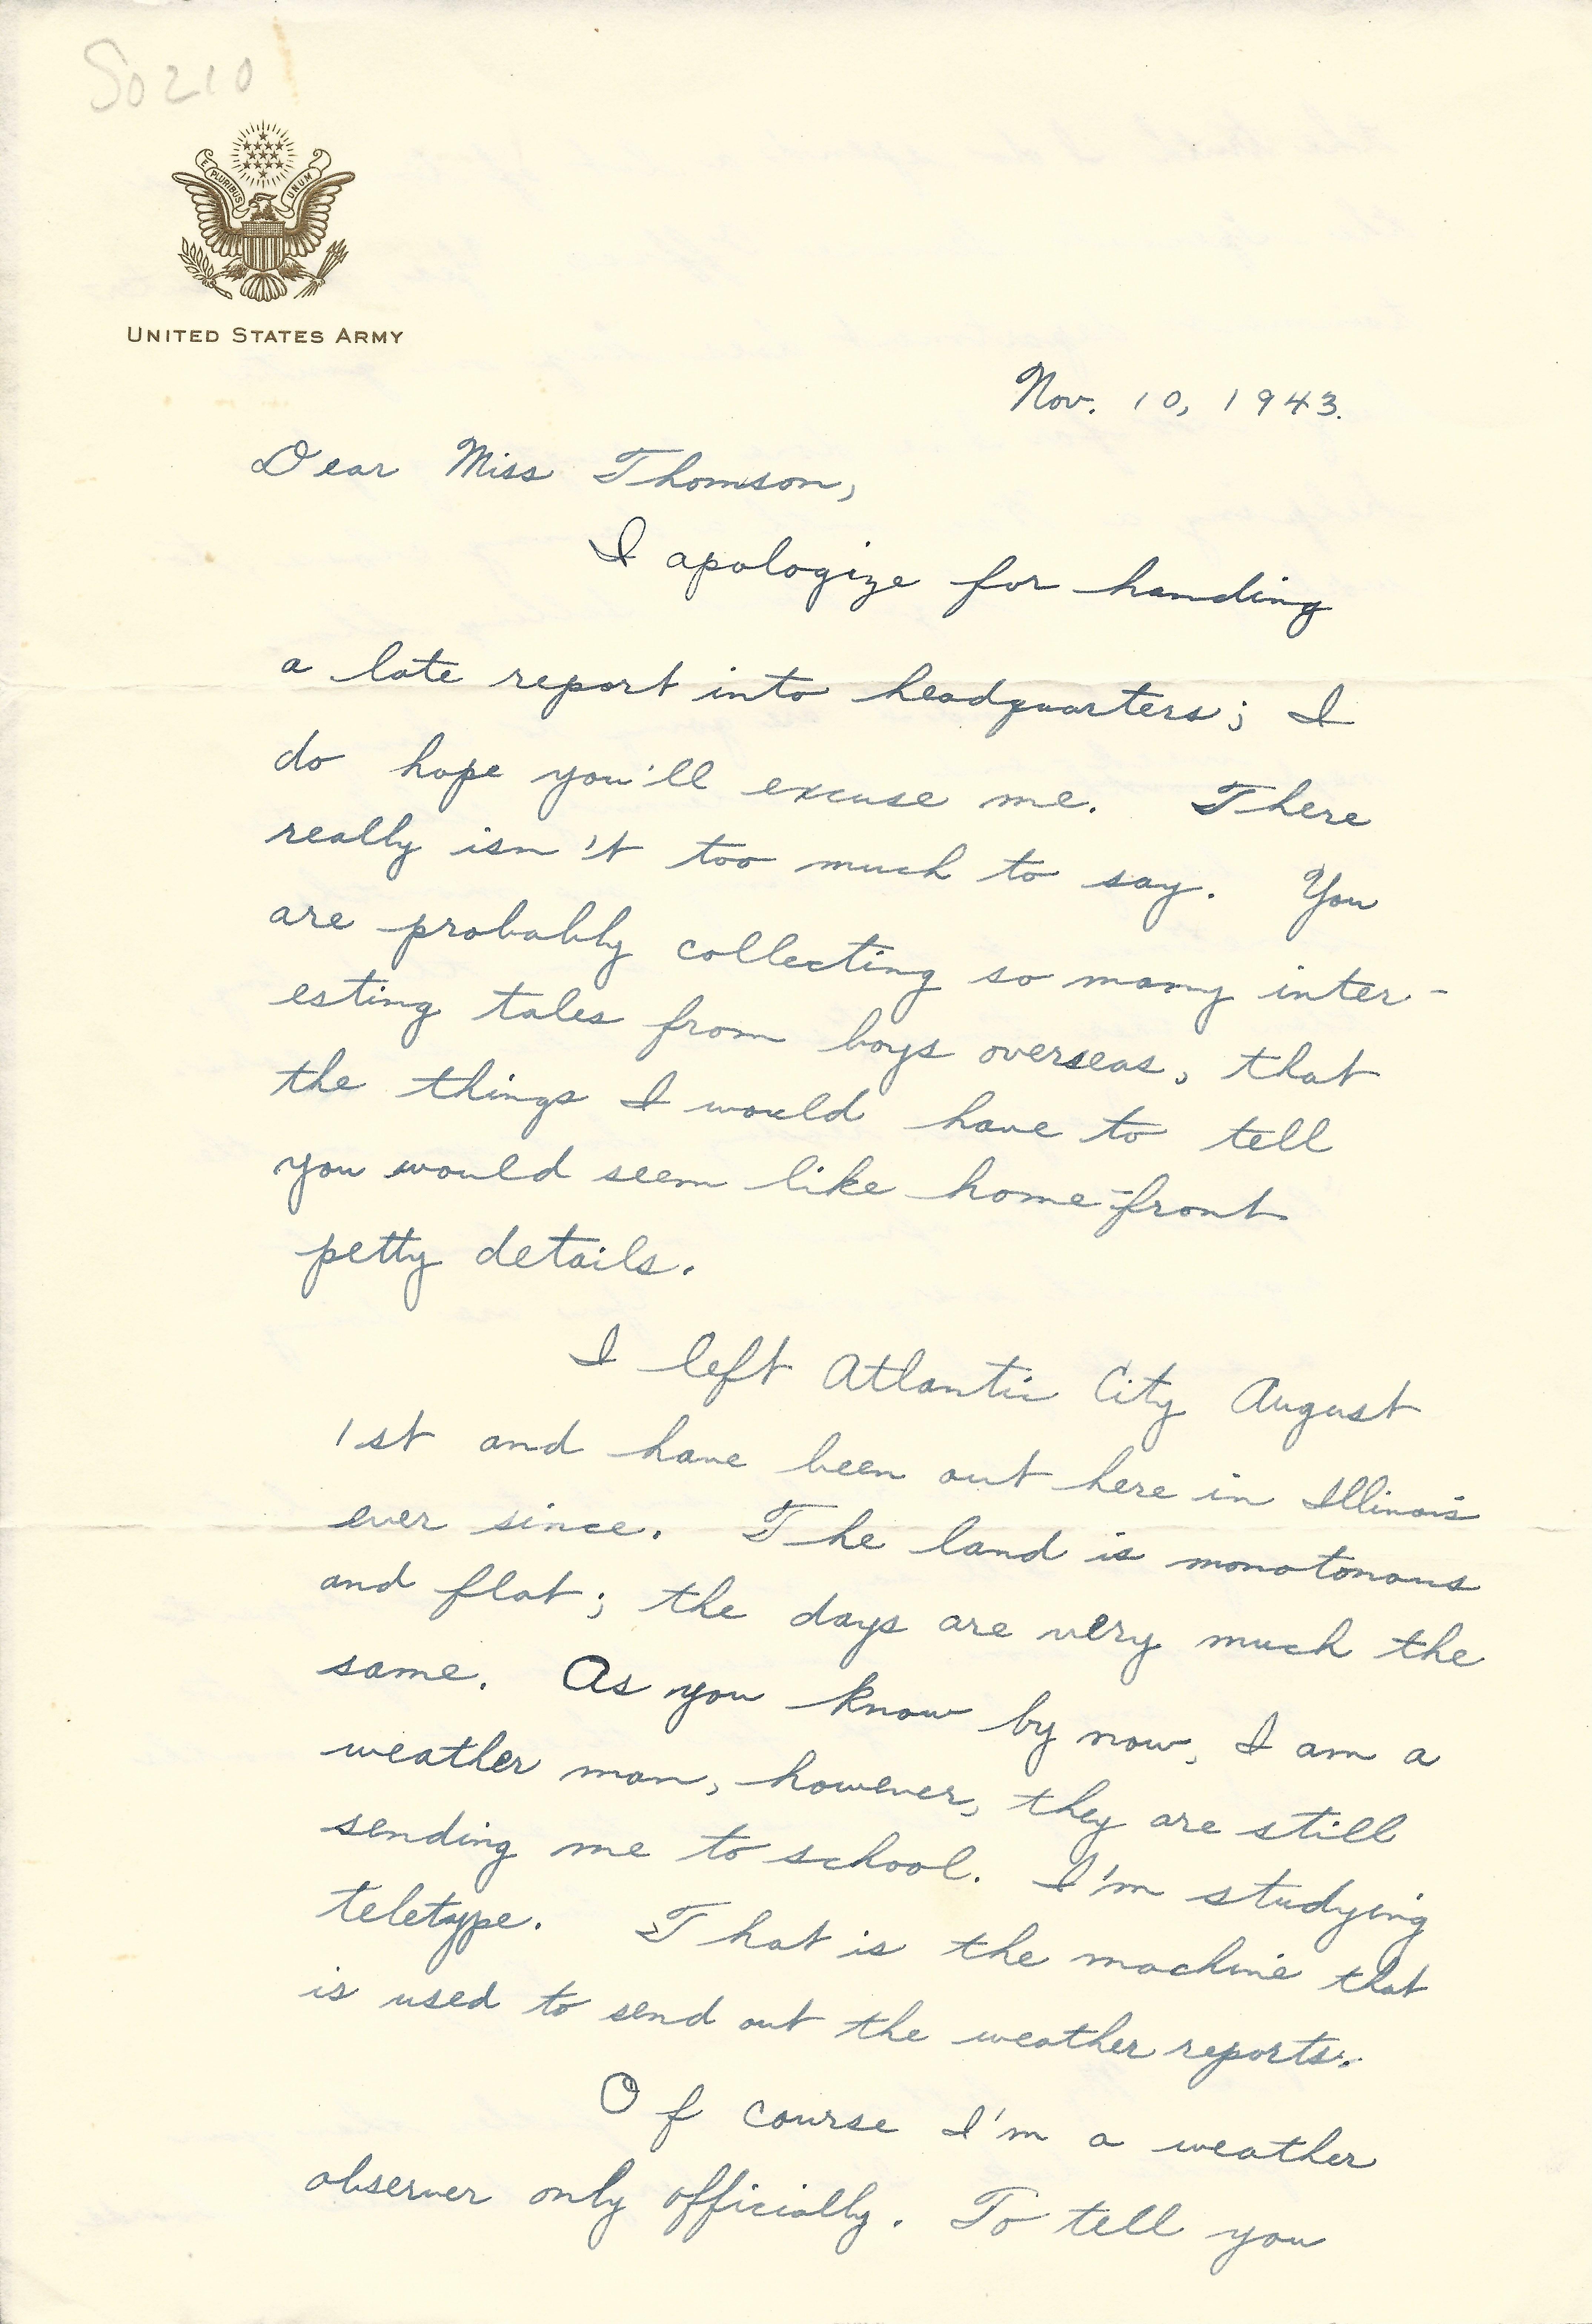 So210
E PLURIBUS UNUM
UNITED STATES ARMY
Nov. 10, 1943.
Dear Miss Thomson,
I apologize for handing
a late report into headquarters; I
do hope you'll excuse me. There
really isn't too much to say. You
are probably collecting so many inter-
esting tales from boys overseas, that
the things I would have to tell
you would seem like home-front
petty details.
I left Atlantic City August
1st and have been out here in Illinois
ever since. The land is monotonous
and flat; the days are very much the
same. As you know by now, I am a
weather man, however, they are still
sending me to school. I'm studying
teletype. That is the machine that
is used to send out the weather reports.
Of course I'm a weather
observer only officially. To tell you